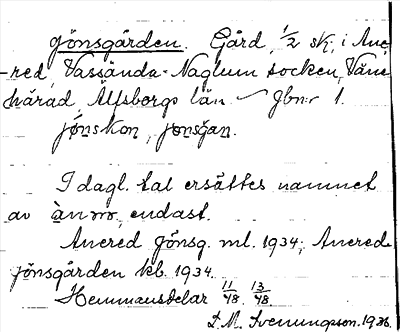 Jönsgården. Gård, 1/2 sk, i Anc-
red, Vassända-Naglum socken, Väne
härad, Älfsborgs län. Jbnr 1.
jönskon, jonsgan.
I dagl. tal ersättes namnet
av ànno, endast.
Ancred Jönsg. ml. 1934; Ancred
Jönsgården kb. 1934.
Hemmansdelar 11/48, 13/48.
D. M. Svenungsson. 1936.